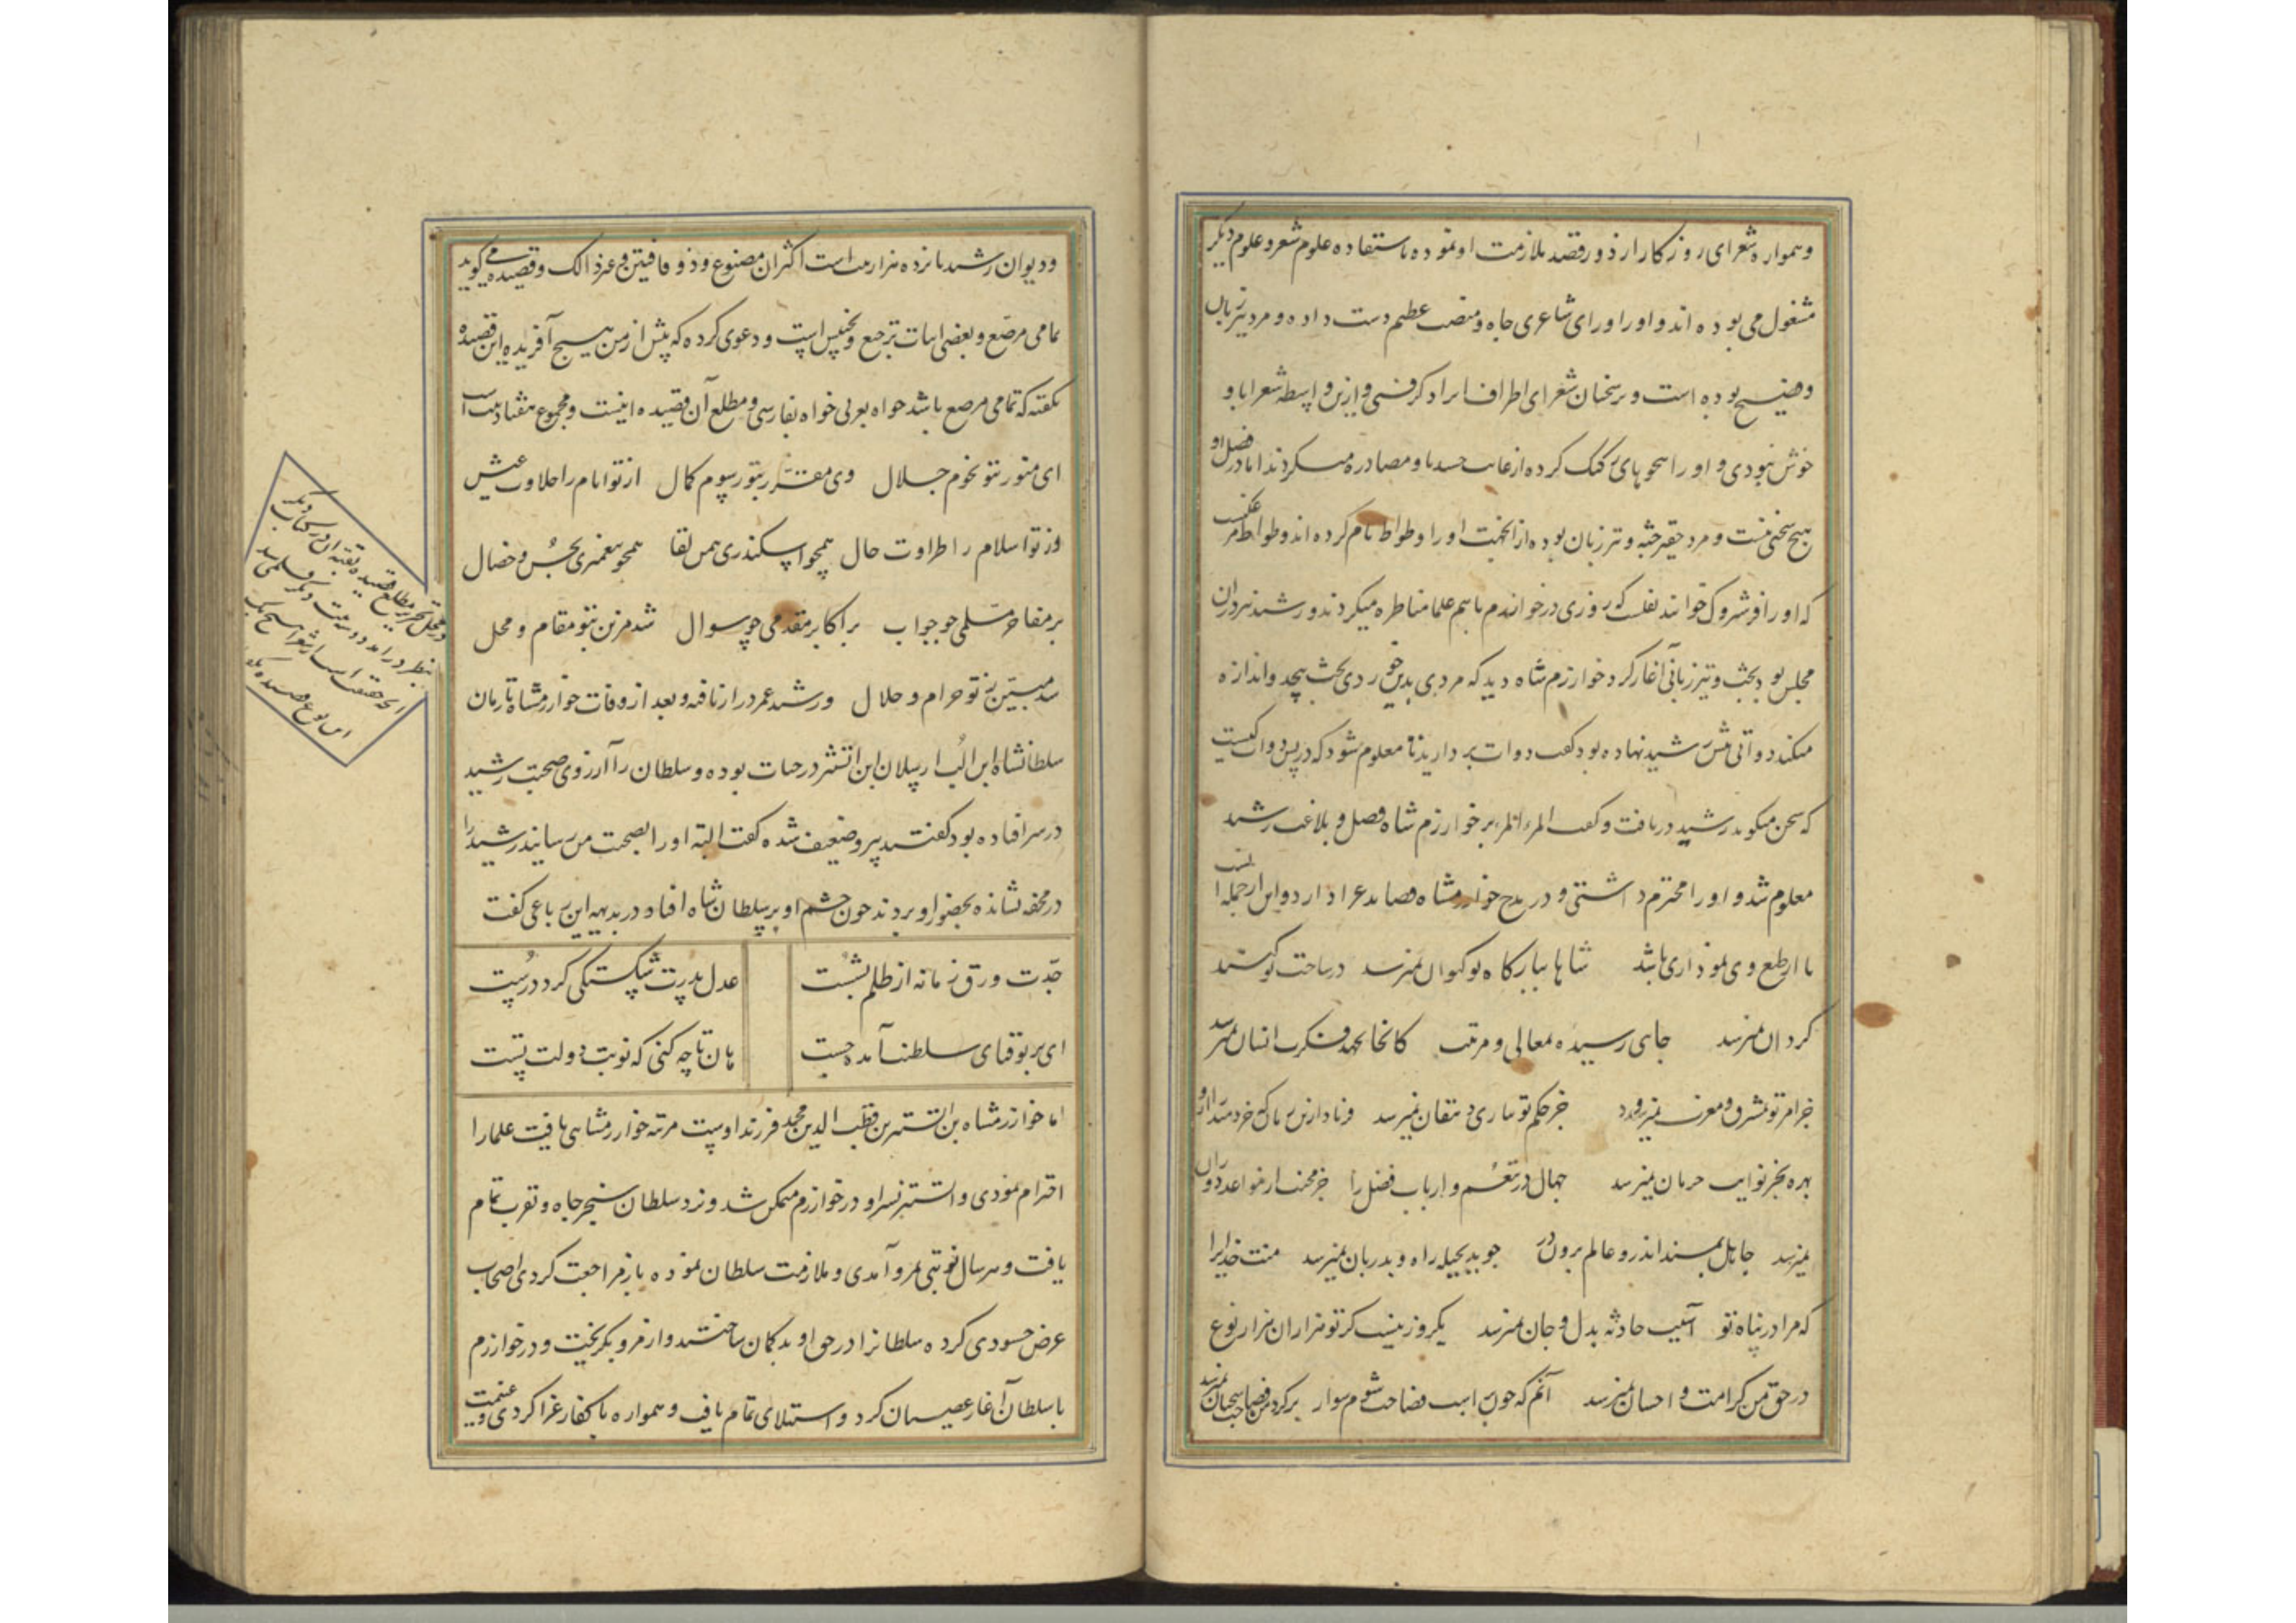 وهمواره شعرای روزکار از دور قصد ملازمت او نموده باستفاده علوم شعر و علوم دیکر
مشغول می بوده اند و او را ورای شاعری جاه و منصب عظیم دست داده و مرد تیز زبان
و فصیح بوده است و بر سخنان شعرای اطراف ایراد کرفتی و ازین واسطه شعرا با او
خوش نبودی و او را هجوهای رکیک کرده از غایت حسد با او مصادره میکردند اما در فضل او
هیچ سخنی نیست و مرد حقیر جثه و تیز زبان بوده از آنجهت او را وطواط نام کرده اند و وطواط مرغکیست
که او را فرشتروک خوانند نقلست که روزی در خوارزم باهم علما مناظره میکردند و رشید نیز در آن
مجلس بود بحث و تیز زبانی آغاز کرد خوارزم شاه دید که مردی بدین خوردی بحث بیحد و اندازه
میکند دواتی پیش رشید نهاده بود کفت دوات بردارید تا معلوم شود که در پس دوات کیست
که سخن میکوید رشید دریافت و کفت المرء بر خوارزم شاه فضل و بلاغت رشید
معلوم شد و او را محترم داشتی و در مدح خوارزمشاه قصاید غرا دارد و این از جمله است
تا از طبع وی نموداری باشد شاها ببارکاه تو کیوان نمیرسد در ساحت تو کنبد
کردان نمیرسد جایی رسیده بمعالی و مرتبت کانجا بجهد فکرت انسان نمیرسد
جز امر تو بمشرق و مغرب نمیرود جز حکم تو بتازی و دهقان نمیرسد
بهره بجز نوایب حرمان نمیرسد جهال در تنعم و ارباب فضل را
نمیرسد جاهل بمسند اندر و عالم برون در جوید بحیله راه و بدربان نمیرسد منت خدایرا
که مرا در پناه تو آسیب حادثه بدل و جان نمیرسد یکروز نیست کز تو هزاران هزار نوع
در حق من کرامت و احسان نمیرسد آنم که چون بر اسب فصاحت شوم سوار
ودیوان رشید پانزده هزار بیت است اکثر آن مصنوع و ذوقافیتین و غیر ذالک و قصیده می کوید
تمامی مرصع و بعضی ابیات ترجیع و تجنیس است و دعوی کرده که پیش از من هیچ آفریده این قصیده
نکفته که تمامی مرصع باشد خواه بعربی خواه بفارسی و مطلع آن قصیده اینست و مجموع هفتاد بیت است
ای منور بتو نجوم جلال وی مقرر بتو رسوم کمال از تو ایام را حلاوت عیش
وز تو اسلام را طراوت حال همچو اسکندری بیمن لقا همچو پیغمبری بحسن خصال
بر مفاخر مسلمی چو جواب بر اکابر مقدمی چو سوال شد مزین بتو مقام و محل
شد مبین ز تو حرام و حلال و رشید عمر دراز یافته و بعد از وفات خوارزمشاه تا زمان
سلطانشاه ابن الب ارسلان ابن اتسز در حیات بوده و سلطان را آرزوی صحبت رشید
در سر افتاده بود کفتند پیر و ضعیف شده کفت البته او را بصحبت من رسانید رشید را
در محفه نشانده بحضور او بردند چون چشم او بر سلطان شاه افتاد در بدیهه این رباعی کفت
جدت ورق زمانه از ظلم بشست عدل پدرت شکستکی کرد درست
ای بر تو قبای سلطنت آمده چست هان تا چه کنی که نوبت دولت تست
اما خوارزمشاه بن اتسز بن قطب الدین محمد فرزند اوست مرتبه خوارزمشاهی یافت علما را
احترام نمودی و اتسز پسر او در خوارزم متمکن شد و نزد سلطان سنجر جاه و تقرب تمام
یافت و هر سال نوبتی بمرو آمدی و ملازمت سلطان نموده باز مراجعت کردی اصحاب
غرض حسودی کرده سلطانرا در حق او بدکمان ساختند و از مرو بکریخت و در خوارزم
با سلطان آغاز عصیان کرد و استیلای تمام یافت و همواره با کفار غزا کردی و غنیمت
در محل تحریر مطلع قصیده
بنظر در آمد